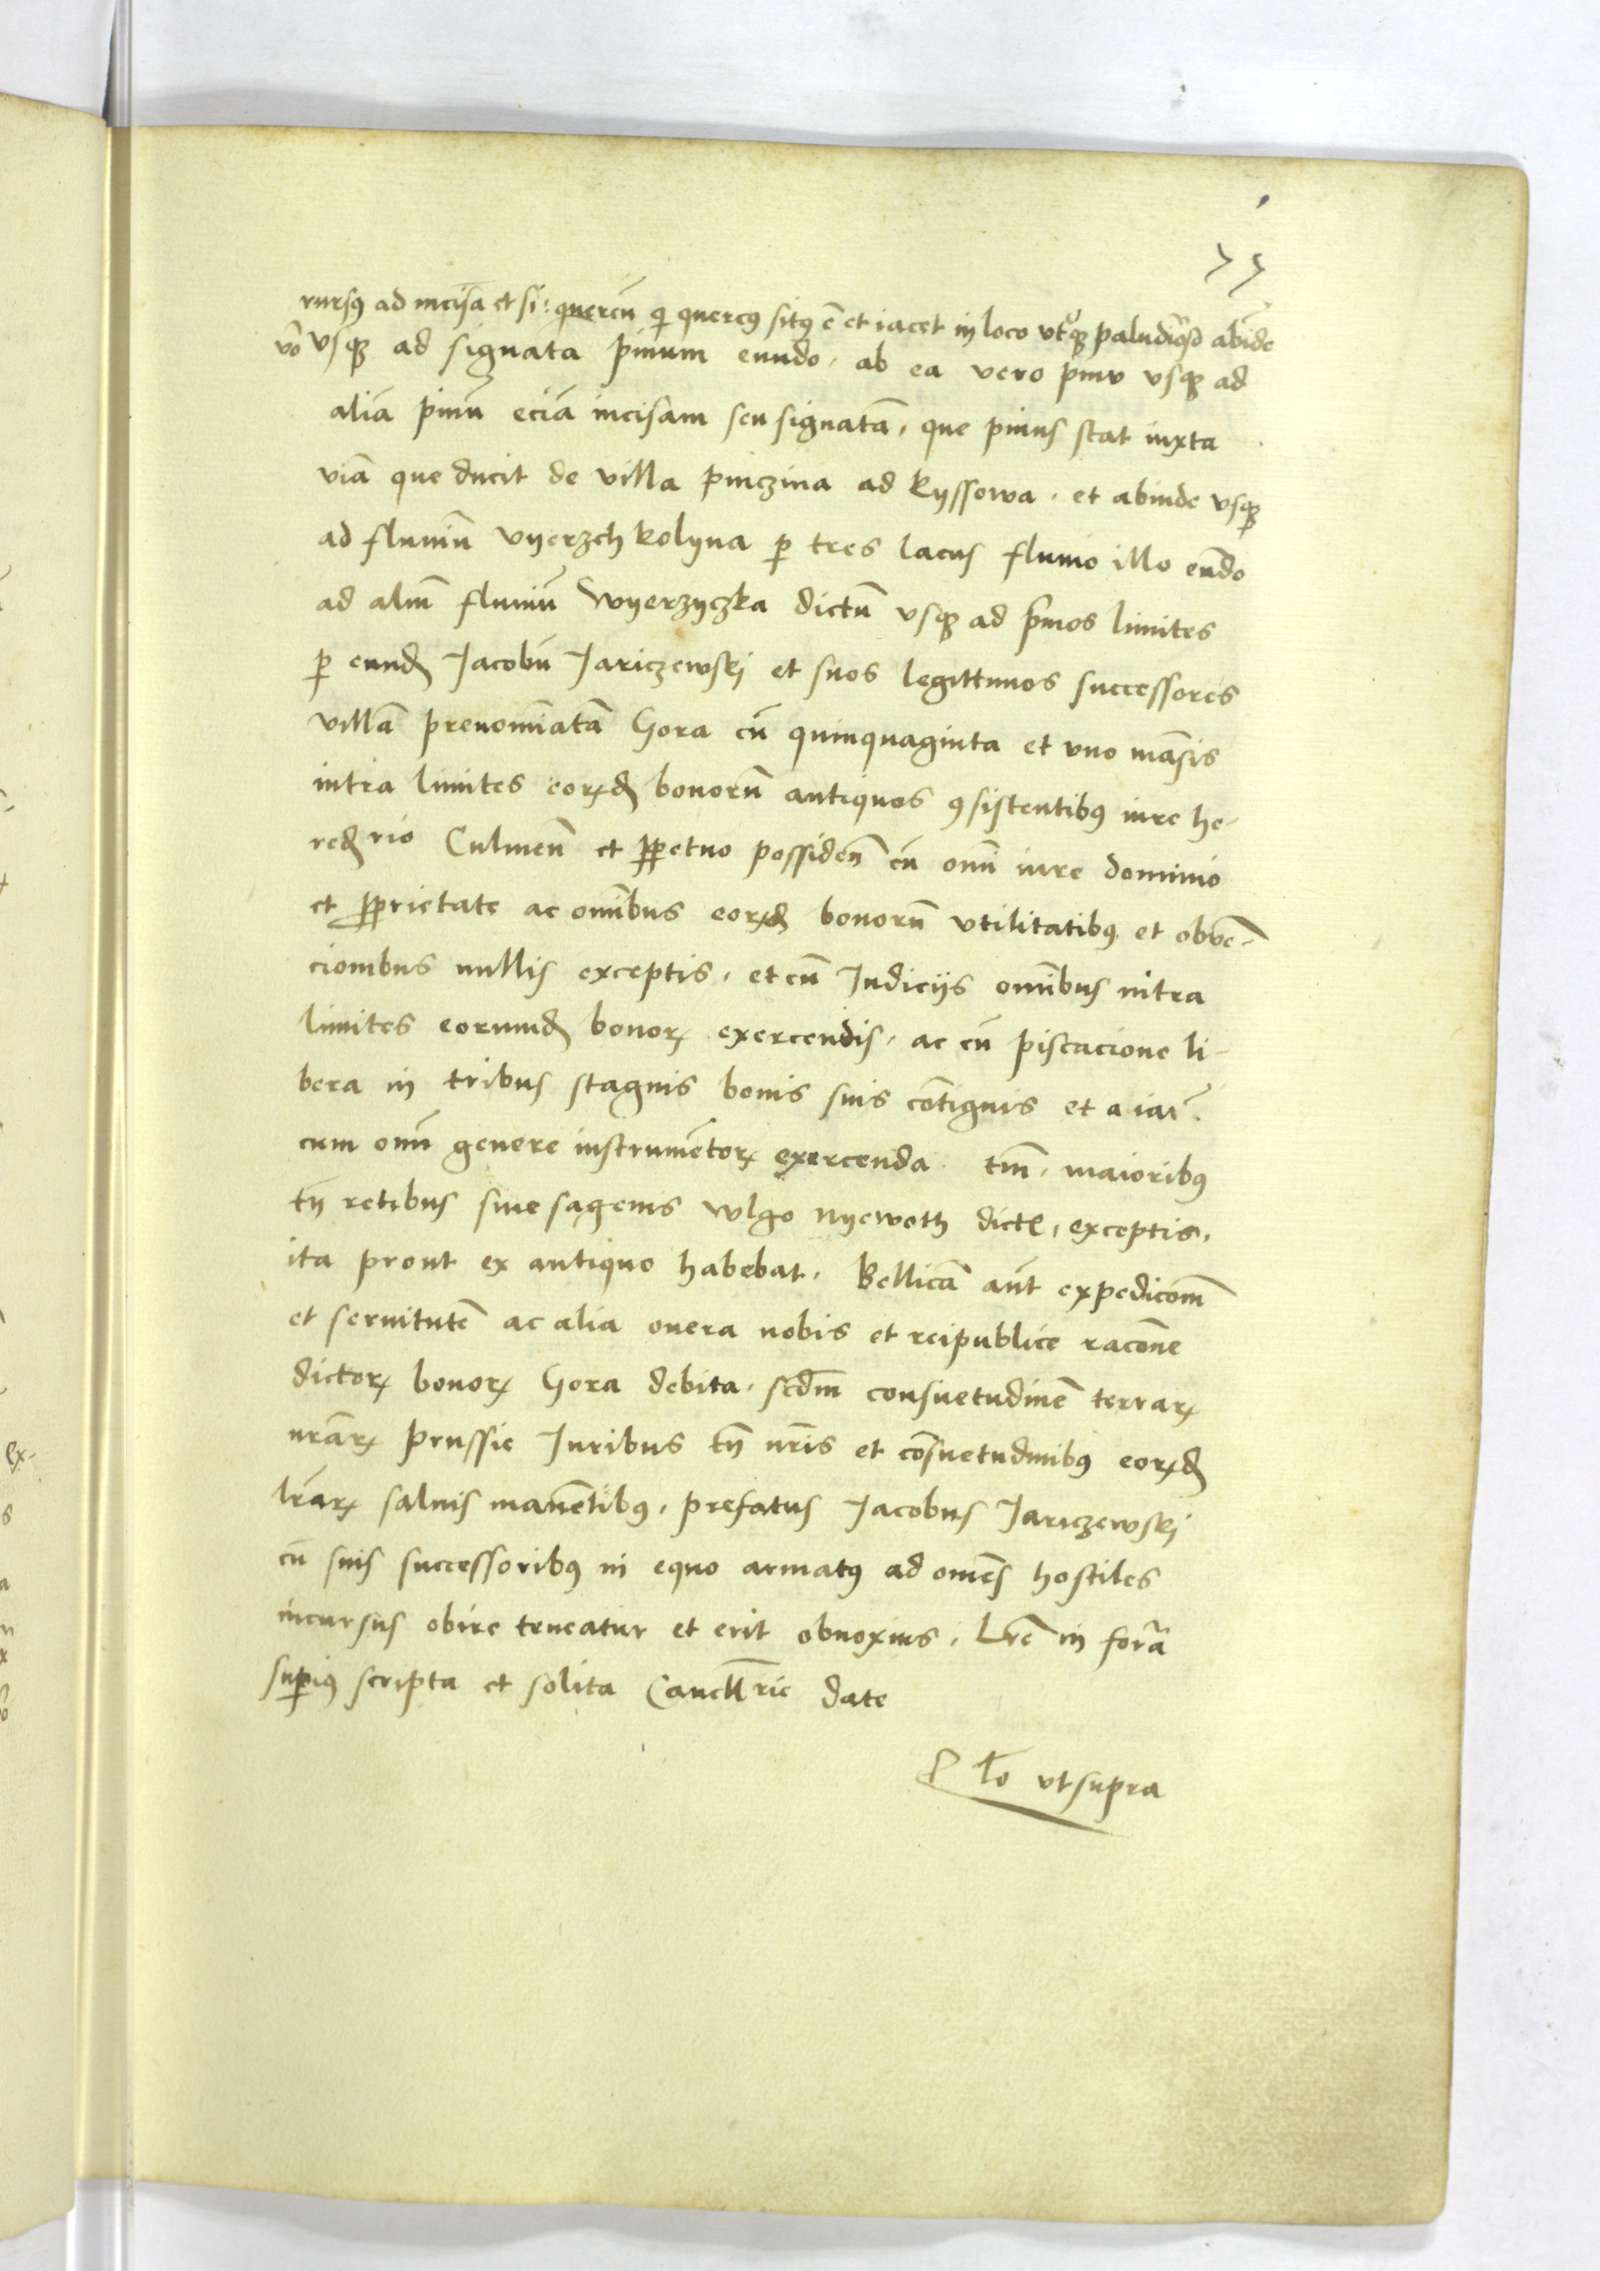 77
rursꝯ ad incisā et si: quercū qi quercꝯ sitꝯ ē et iacet in loco utqꝫ paludiqꝫ abīde
vō vsqꝫ ad signata pinum eundo, ab ea vero pinu vsqꝫ ad
aliā pinū eciā incisam seu signatā, que pinus stat iuxta
viā que ducit de villa pinczina ad Ryssowa, et abinde vsqꝫ
ad fluviū vyerzch kolyna ꝑ tres lacus fluvio illo eūdo
ad aliū fluviū Wyerzyczka dictū vsqꝫ ad pͥmos limites
ꝑ eundꝫ Jacobū Jariczewskj et suos legittimos successores
villā prenoīatā Gora cū quinquaginta et uno māsis
intra limites eorꝝdꝫ bonorū antiquos ꝯsistentibꝯ iure he-
redrio Culmeñ et ꝑpetuo possideñ cū om̄i iure dominio
et ꝓprietate ac om̄ibus eorꝝdꝫ bonorū utilitatibꝯ et obvē-
cionibus nullis exceptis, et cū Judicijs om̄ibus intra
limites eorumdꝫ bonoꝝ exercendis, ac cū piscacione li-
bera in tribus stagnis bonis suis cōtiguis et
cum om̄i genere instrumētoꝝ exercenda tm̄, maioribꝯ
tn̄ retibus sive sagenis wlgo nyewoth dict, exceptis,
ita prout ex antiquo habebat, Bellicā aūt expedicom̄
et servitutē ac alia onera nobis et reipublice racōne
dictoꝝ bonoꝝ Gora debita, scdm̄ consuetudinē terraꝝ
nr̄aꝝ prussie Juribus tn̄ nr̄is et cōsuetudinibꝯ eorꝝdꝫ
tr̄aꝝ salvis manētibꝯ, prefatus Jacobus Jariczewskj
cū suis successoribꝯ in equo armatꝯ ad om̄es hostiles
incursus obire teneatur et erit obnoxius, Lr̄e in forā
suꝑiꝯ scripta et solita Cancll̄rie date
Rlō vt supra